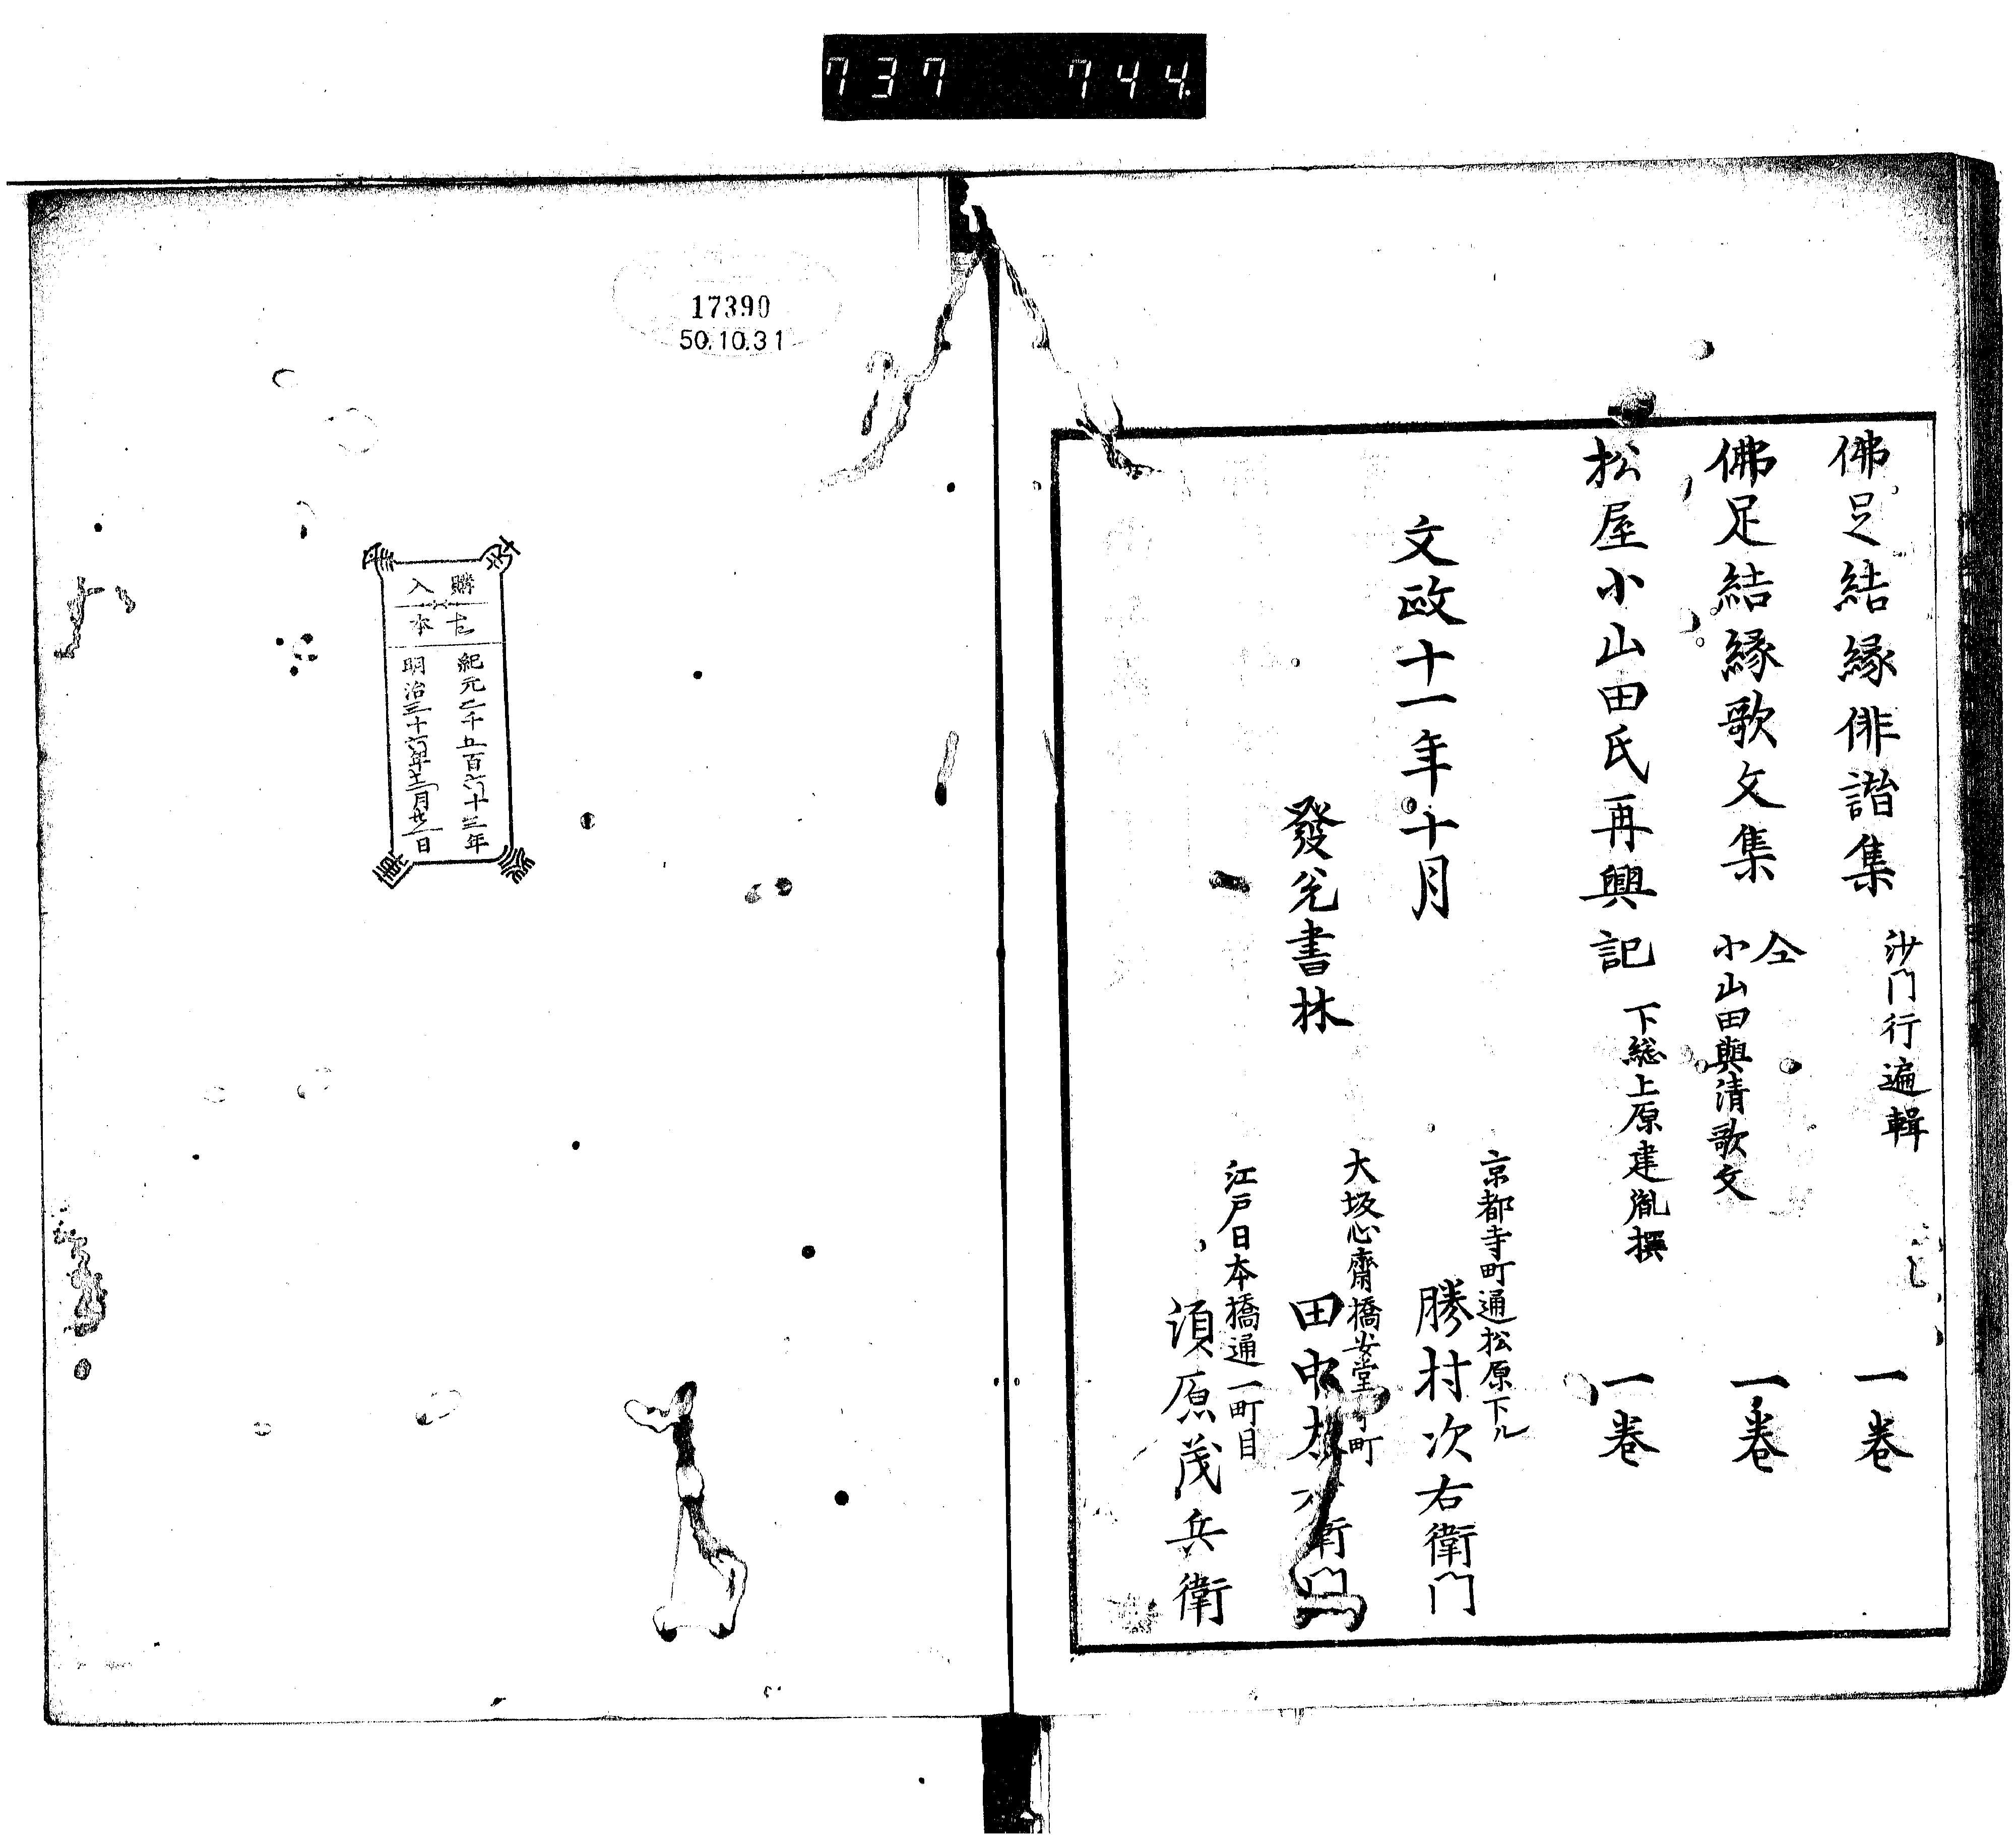 737 744
佛足結縁俳諧集 沙門行遍輯 一巻
佛足結縁歌文集 仝 小山田與清歌文 一巻
松屋小山田氏再興記 下総上原建胤撰 一巻
文政十一年十月
發兌書林
京都寺町通松原下ル
勝村次右衛門
大坂心齋橋安堂寺町
田中太右衛門
江戸日本橋通一町目
須原茂兵衛
17390
50.10.31
購入
古本
紀元二千五百六十三年
明治三十六年十二月廿二日